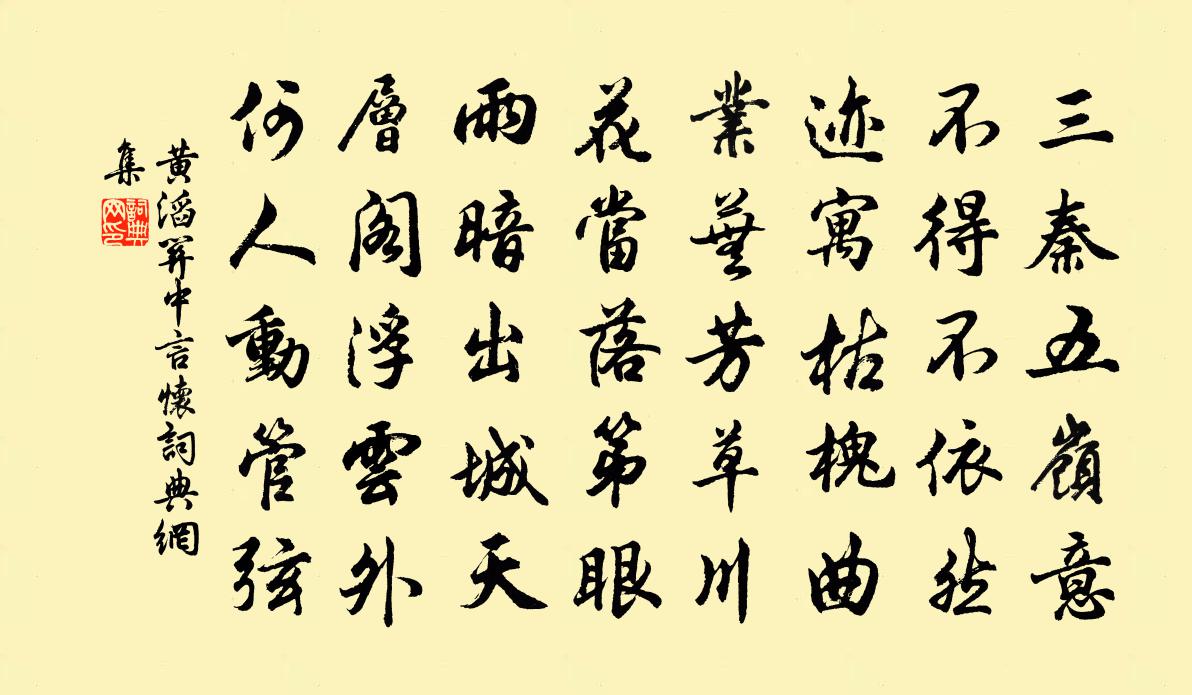 三秦五嶺意
不得不依然
迹寓枯槐曲
業蕪芳草川
花當落第眼
雨暗出城天
層閣浮雲外
何人動管弦
黄滔關中言懷詞典網
集
詞典網印